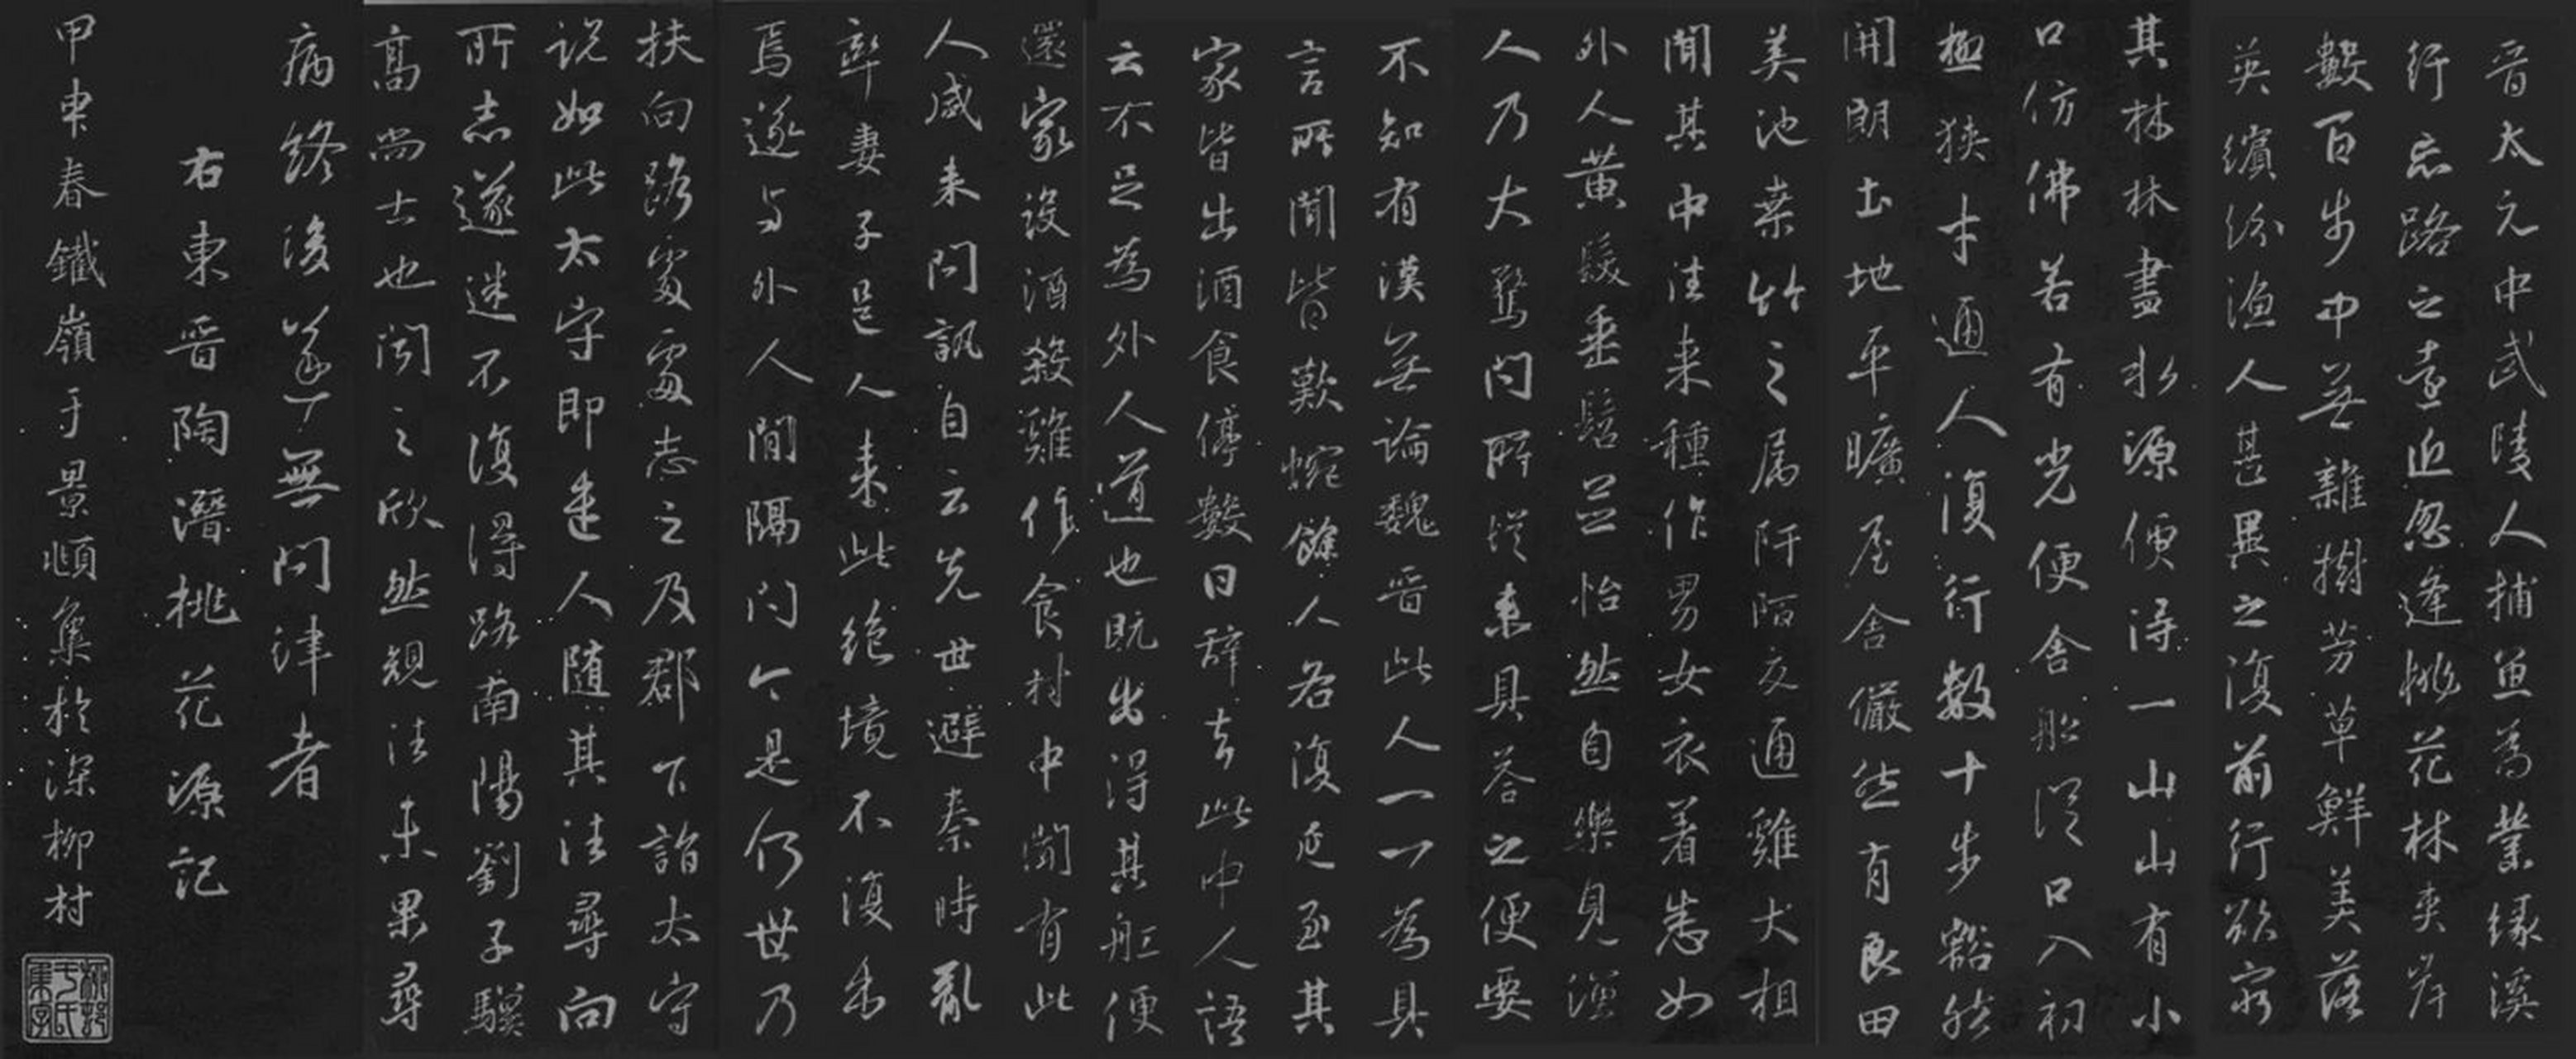 晋太元中武陵人捕魚為業缘溪
行忘路之遠近忽逢桃花林夹岸
數百步中無雜樹芳草鮮美落
英繽紛渔人甚異之復前行欲窮
其林林盡水源便得一山山有小
口仿佛若有光便舍船從口入初
極狭才通人復行數十步豁然
開朗土地平曠屋舍儼然有良田
美池桑竹之属阡陌交通雞犬相
聞其中往来種作男女衣着悉如
外人黄髮垂髫並怡然自樂見渔
人乃大驚問所從来具答之便要
不知有漢無論魏晋此人一一為具
言所聞皆歎惋餘人各復延至其
家皆出酒食停數日辞去此中人語
云不足為外人道也既出得其船便
還家設酒殺雞作食村中聞有此
人咸来問訊自云先世避秦時亂
率妻子邑人来此絶境不復出
焉遂与外人間隔問今是何世乃
扶向路處處志之及郡下詣太守
说如此太守即遣人随其往尋向
所志遂迷不復得路南陽劉子驥
高尚士也聞之欣然規往未果尋
病終後遂無問津者
右東晋陶潛桃花源記
甲申春鐵嶺于景頫集於深柳村